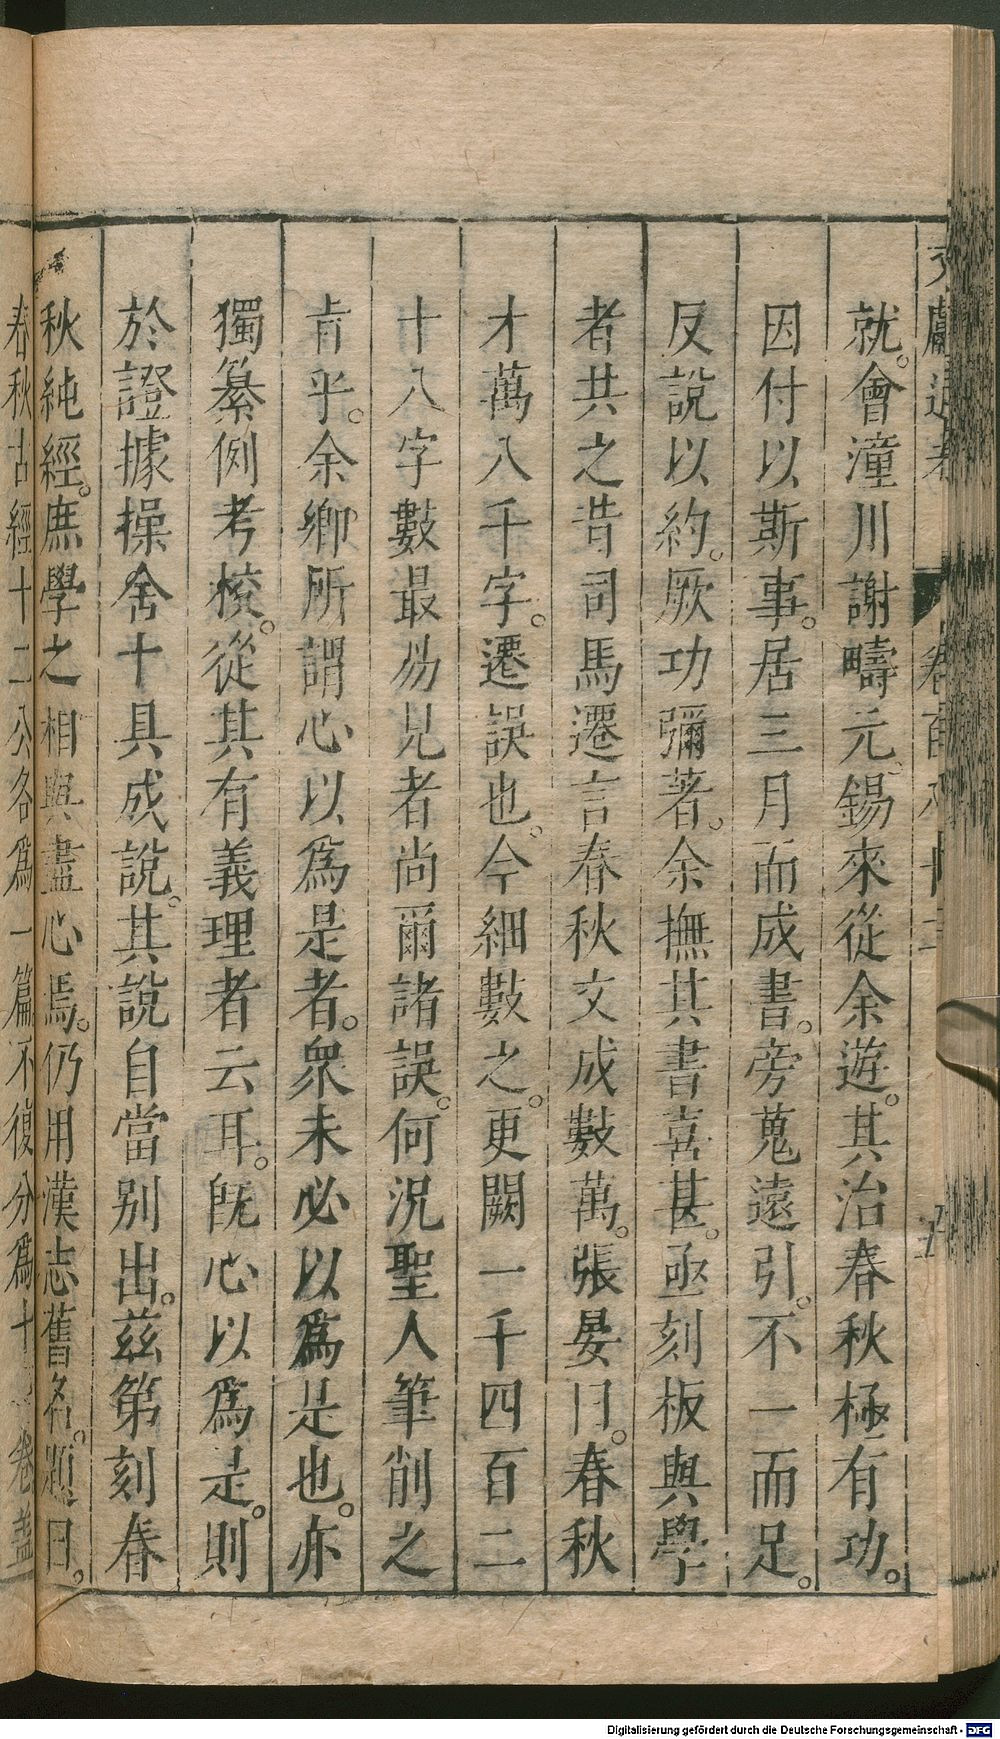 文獻通考 卷百八十二
就。會潼川謝疇元錫來從余遊。其治春秋極有功。
因付以斯事。居三月而成書。旁蒐遠引。不一而足。
反說以約。厥功彌著。余撫其書喜甚。亟刻板與學
者共之昔司馬遷言春秋文成數萬。張晏曰。春秋
才萬八千字。遷誤也。今細數之。更闕一千四百二
十八字數最易見者尚爾諸誤。何況聖人筆削之
肯乎。余鄉所謂心以爲是者。衆未必以爲是也。亦
獨纂例考校。從其有義理者云耳。既心以爲是。則
於證據操舍十具成說。其說自當別出。茲第刻春
秋純經。庶學之相與盡心焉。仍用漢志舊名。題曰。
春秋古經十二公各爲一篇不復分爲十 卷蓋
Digitalisierung gefördert durch die Deutsche Forschungsgemeinschaft - DFG